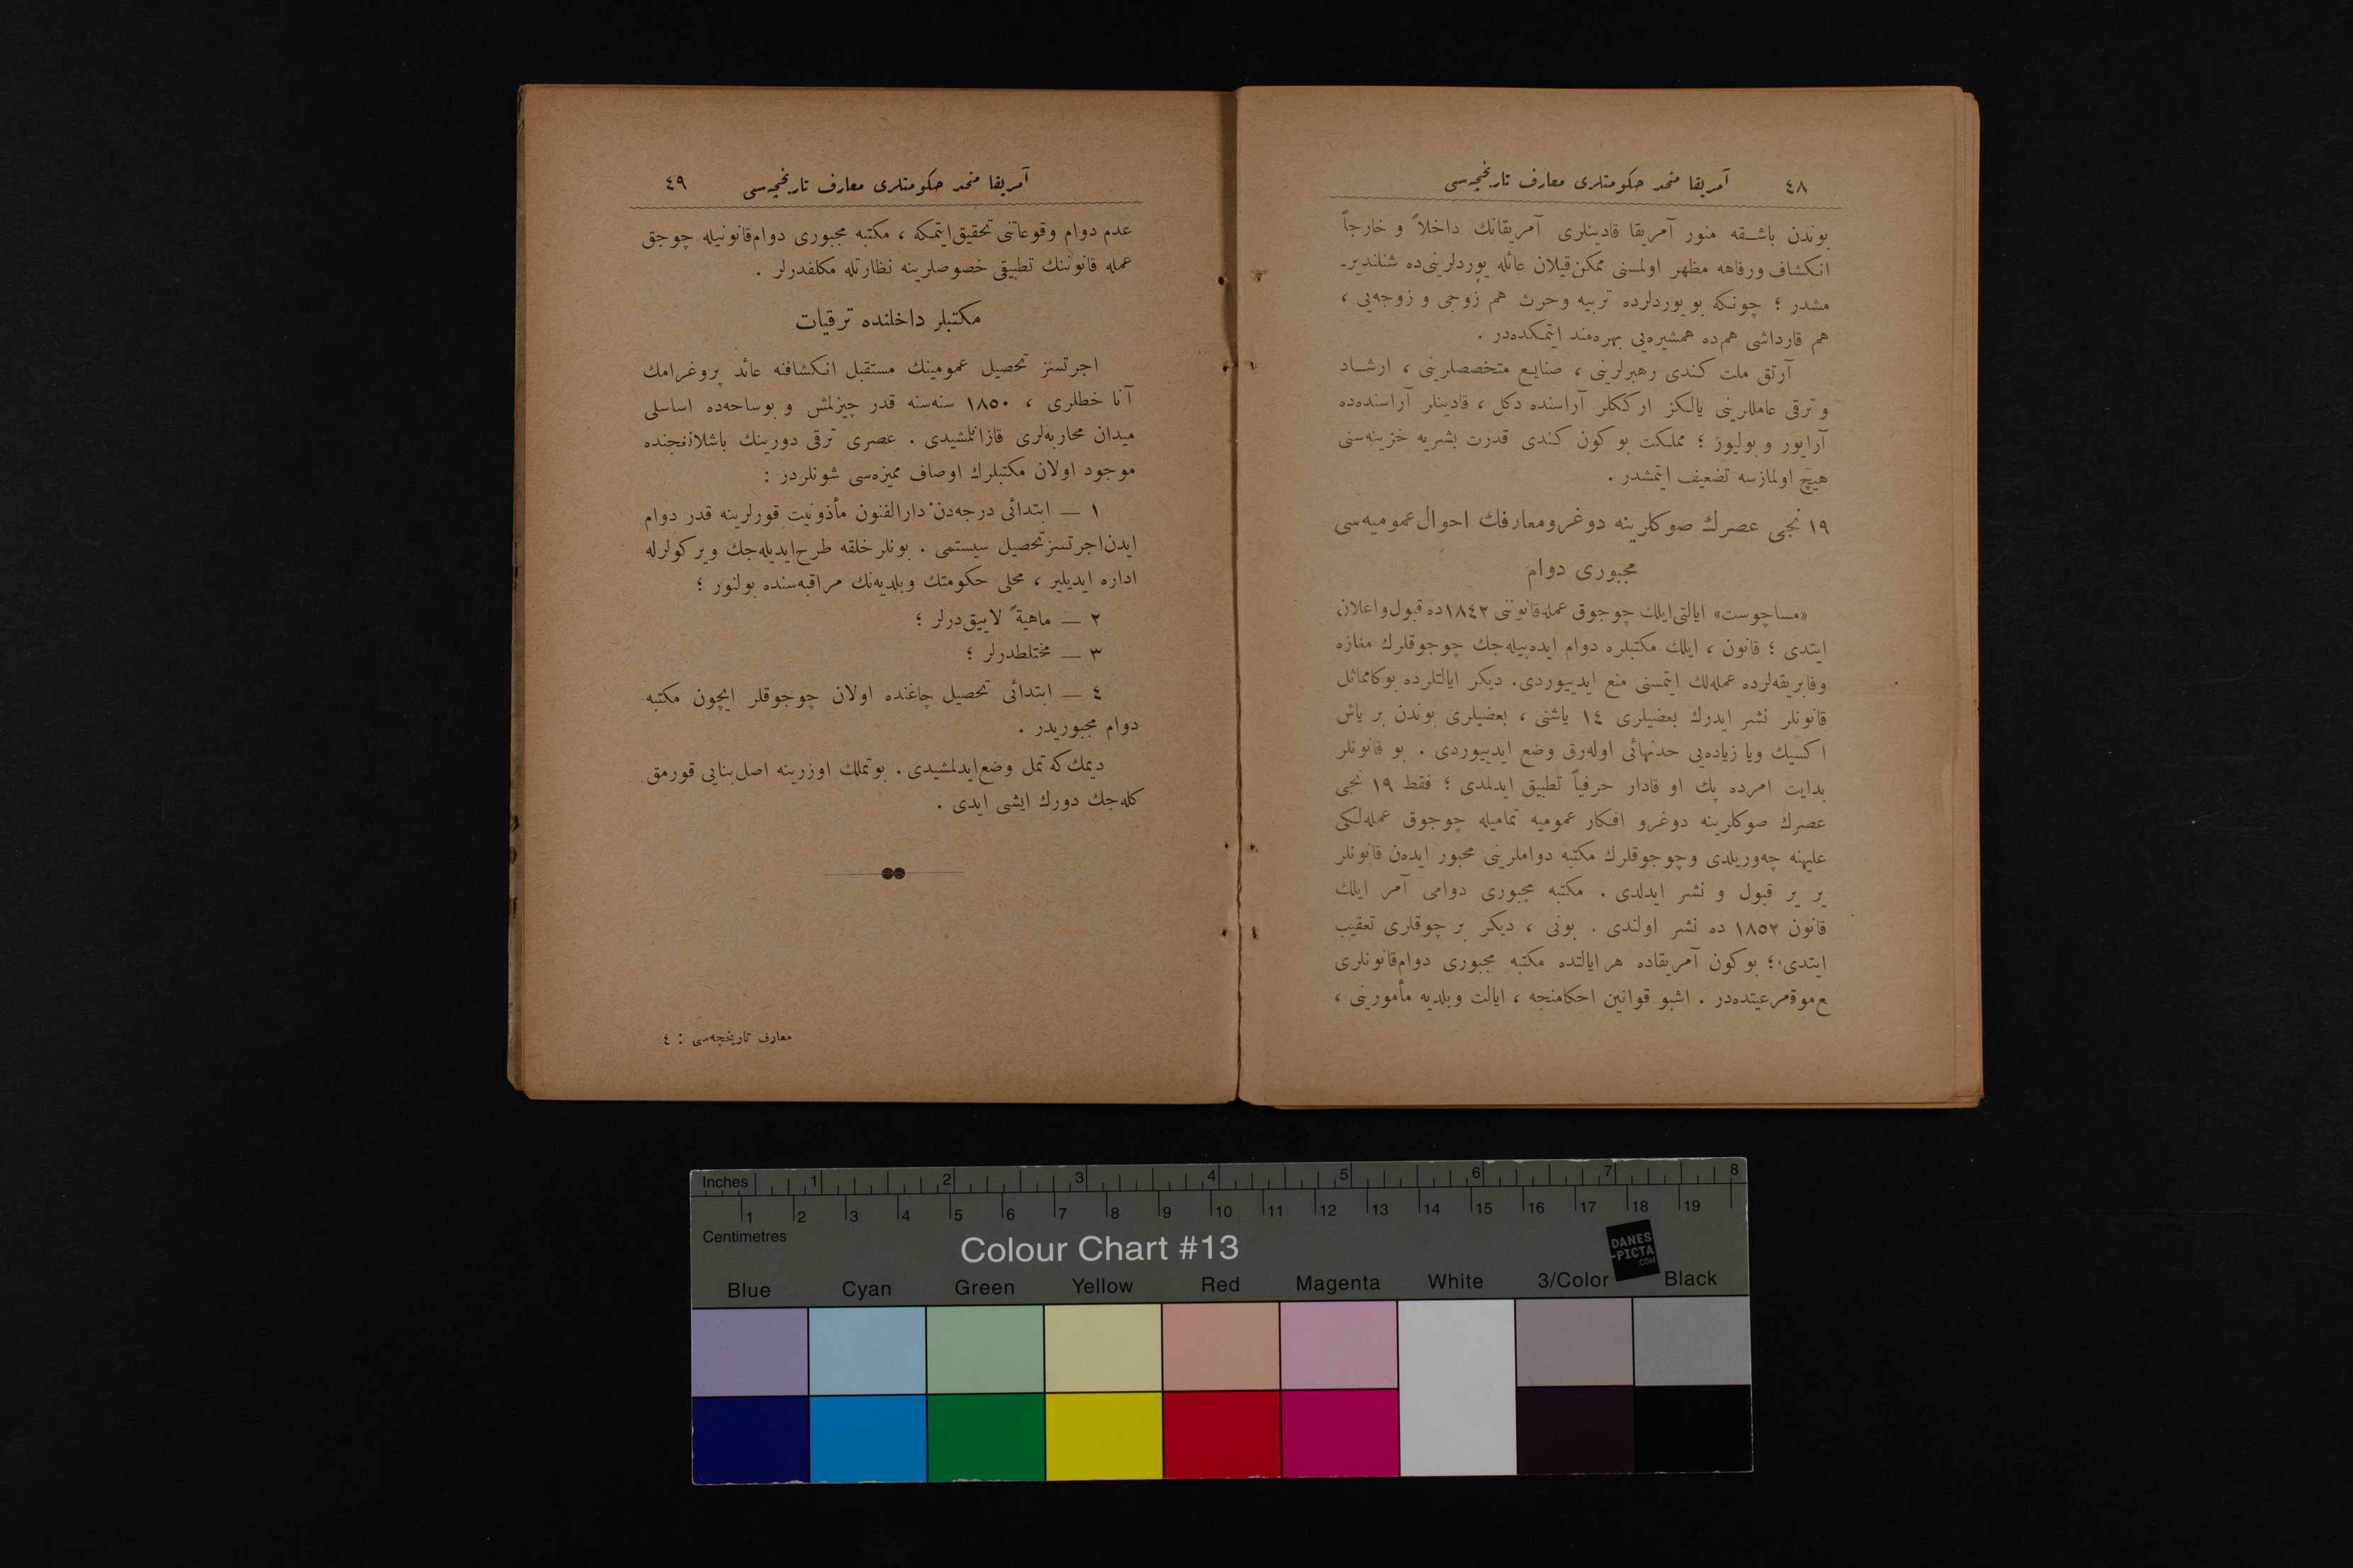 ٤٨ آمريقا متحد حكومتلرى معارف تاريخچه‌سى
بوندن باشـقه منور آمريقا قادينلرى آمريقانك داخلاً و خارجاً
انكشاف ورفاهه مظهر اولمسنى ممكن قيلان عائله يوردلرينى ده شنلنديرـ
مشدر ؛ چونكه بو يوردلرده تربيه وحرث هم زوجى و زوجه‌يى ،
هم قارداشى هم‌ده همشيره‌يى بهره‌مند ايتمكده‌در .
آرتق ملت كندى رهبرلرينى ، صنايع متخصصلرينى ، ارشـاد
و ترقى عامللرينى يالكز ارككلر آراسنده دكل ، قادينلر آراسنده‌ده
آرايور و بوليور ؛ مملكت بو كون كندى قدرت بشريه خزينه‌سنى
هيچ اولمازسه تضعيف ايتمشدر .
١٩ نجى عصرك صوكلرينه دوغرومعارفك احوال عموميه‌سى
مجبورى دوام
«مساچوست» ايالتى ايلك چوجوق عمله‌قانوننى ١٨٤٢ده قبول واعلان
ايتدى ؛ قانون ، ايلك مكتبلره دوام ايده‌بيله‌جك چوجوقلرك مغازه
وفابريقه‌لرده عمله‌لك ايتمسنى منع ايدييوردى. ديكر ايالتلرده بوكامماثل
قانونلر نشر ايدرك بعضيلرى ١٤ ياشنى ، بعضيلرى بوندن بر ياش
اكسيك ويا زياده‌يى حدنهائى اوله‌رق وضع ايدييوردى . بو قانونلر
بدايت امرده پك او قادار حرفياً تطبيق ايدلمدى ؛ فقط ١٩ نجى
عصرك صوكلرينه دوغرو افكار عموميه تماميله چوجوق عمله‌لكى
عليهنه چه‌وريلدى وچوجوقلرك مكتبه دواملرينى مجبور ايده‌ن قانونلر
بر بر قبول و نشر ايدلدى . مكتبه مجبورى دوامى آمر ايلك
قانون ١٨٥٢ ده نشر اولندى . بونى ، ديكر بر چوقلرى تعقيب
ايتدى ؛ بو كون آمريقاده هر ايالتده مكتبه مجبورى دوام‌قانونلرى
ع موقمرعيتده‌در . اشبو قوانين احكامنجه ، ايالت وبلديه مأمورينى ،
آمريقا متحد حكومتلرى معارف تاريخچه‌سى ٤٩
عدم دوام وقوعاتنى تحقيق‌ايتمكه ، مكتبه مجبورى دوام‌قانونيله چوجق
عمله قانوننك تطبيقى خصوصلرينه نظارتله مكلفدرلر .
مكتبلر داخلنده ترقيات
اجرتسز تحصيل عمومينك مستقبل انكشافنه عائد پروغرامك
آنا خطلرى ، ١٨٥٠ سنه‌سنه قدر چيزلمش و بوساحه‌ده اساسلى
ميدان محاربه‌لرى قازانلمشيدى . عصرى ترقى دورينك باشلانغجنده
موجود اولان مكتبلرك اوصاف مميزه‌سى شونلردر :
١ — ابتدائى درجه‌دن دارالفنون مأذونيت قورلرينه قدر دوام
ايدن‌اجرتسزتحصيل سيستمى . بونلر خلقه طرح‌ايديله‌جك ويركولرله
اداره ايديلير ، محلى حكومتك وبلديه‌نك مراقبه‌سنده بولنور ؛
٢ — ماهيةً لاييق‌درلر ؛
٣ — مختلطدرلر ؛
٤ — ابتدائى تحصيل چاغنده اولان چوجوقلر ايچون مكتبه
دوام مجبوريدر .
ديمك كه تمل وضع‌ايدلمشيدى . بوتملك اوزرينه اصل بنايى قورمق
كله‌جك دورك ايشى ايدى .
معارف تاريخچه‌سى : ٤
Inches 1 2 3 4 5 6 7 8
1 2 3 4 5 6 7 8 9 10 11 12 13 14 15 16 17 18 19
Centimetres
Colour Chart #13
DANES
-PICTA
.COM
Blue Cyan Green Yellow Red Magenta White 3/Color Black